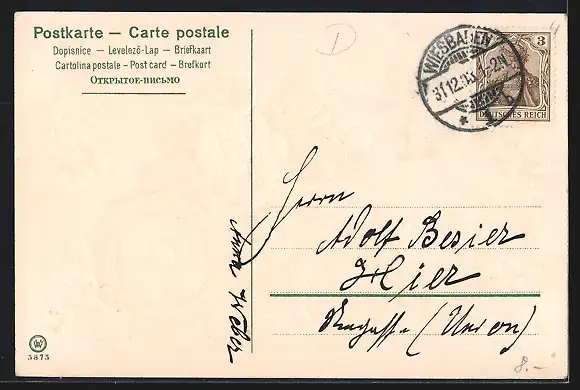 Postkarte — Carte postale
Dopisnice — Levelező-Lap — Briefkaart
Cartolina postale — Post card — Brefkort
ОТКРЫТОЕ-ПИСЬМО
D
WIESBADEN
31.12.03. 1-2N
* b
3
DEUTSCHES REICH
Herrn
Adolf Besier
Hier
(Union)
Anna Weber
5875
8.-